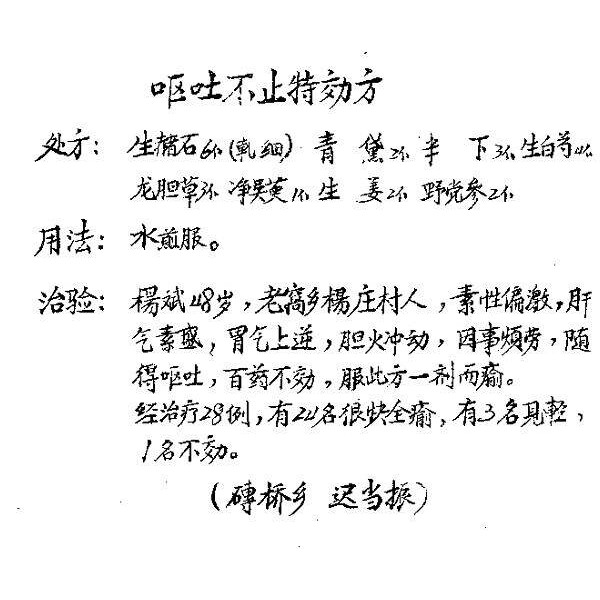 呕吐不止特効方
处方：生楮石6不(軋细) 青 黛2不 半 下3不 生白芍4不
龙胆草3不 净吴萸1不 生 姜2不 野党参2不
用法：水煎服。
治验：楊斌48岁，老窩乡楊庄村人，素性偏激，肝
气素盛，胃气上逆，胆火冲动，因事烦劳，随
得呕吐，百药不効，服此方一剂而瘉。
经治疗28例，有24名很快全瘉，有3名見軽，
1名不効。
(磚桥乡 迟当振)